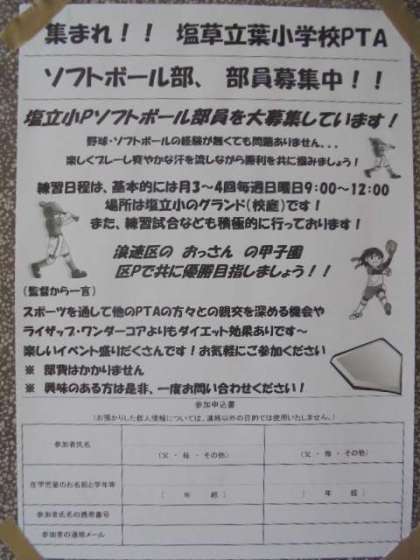 集まれ！！ 塩草立葉小学校PTA
ソフトボール部、 部員募集中！！
塩立小Pソフトボール部員を大募集しています！
野球・ソフトボールの経験が無くても問題ありません．．．
楽しくプレーし爽やかな汗を流しながら勝利を共に掴みましょう！
練習日程は、基本的には月3～4回毎週日曜日9:00～12:00
場所は塩立小のグランド(校庭)です！
また、練習試合なども積極的に行っております！
浪速区の おっさん の甲子園
区Pで共に優勝目指しましょう！！
(監督から一言)
スポーツを通して他のPTAの方々との親交を深める機会や
ライザップ・ワンダーコアよりもダイエット効果ありです～
楽しいイベント盛りだくさんです！お気軽にご参加ください
※ 部費はかかりません
※ 興味のある方は是非、一度お問い合わせください！
参加申込書
(お預かりした個人情報については、連絡以外の目的では使用いたしません。)
参加者氏名 (父 ・ 母 ・ その他) (父 ・ 母 ・ その他)
在学児童のお名前と学年等 ( 年 組) ( 年 組)
参加者氏名の携帯番号
参加者の連絡メール